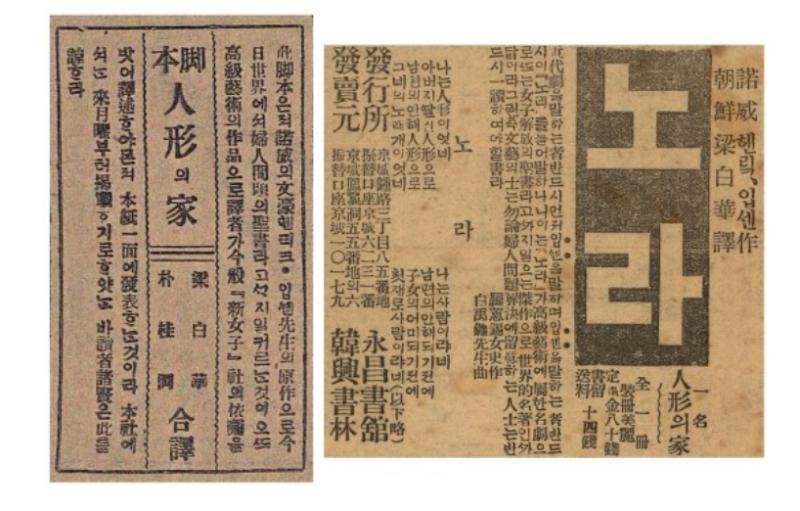 此脚本은 諾威의文豪헨리크・입센先生의原作으로今
日世界에셔婦人問題의聖書라고ᄭᅡ지일커르는것이오ᄯᅩ
高級藝術의作品으로譯者가今般『新女子』社의依囑을
脚本
人形의家
梁白華
朴桂岡
合譯
밧어譯述ᄒᆞ야 本紙一面에發表ᄒᆞᄂᆞᆫ것이라 本社에
셔ᄂᆞᆫ 來月曜부터揭載ᄒᆞ기로ᄒᆞ얏ᄂᆞᆫ바讀者諸賢은此를
諒ᄒᆞ라
諾威 헨릭、입센作
朝鮮 梁白華譯
노라
一名
人形의家
全一冊
裝冊美麗
定價金八十錢
書留送料 十四錢
近代劇을말하는者반드시먼저입센을말하며입센을말하는者반드
시이『노라』를들어말하나니이는『노라』가高級藝術에屬한名劇으
로또는女子解放의聖書라고까지일으는傑作으로世界的名著인까
닭이라그럼즉文藝의士는勿論婦人問題解決에留意하는人士는반
드시一讀하여야할書라
羅蕙錫女史作
白禹鏞先生曲
노라
나는人形이엿네
아버지딸인人形으로
남편의안해人形으로
그네의노래개이엿네
나는사람이라네
남편의안해되기前에
子女의어미되기前에
첫재로사람이라네(以下略)
發行所
京城鍾路三丁目八五番地
振替口座京城六二三一番
永昌書舘
發賣元
京城 五五番地의六
振替口座京城一〇一七九
韓興書林